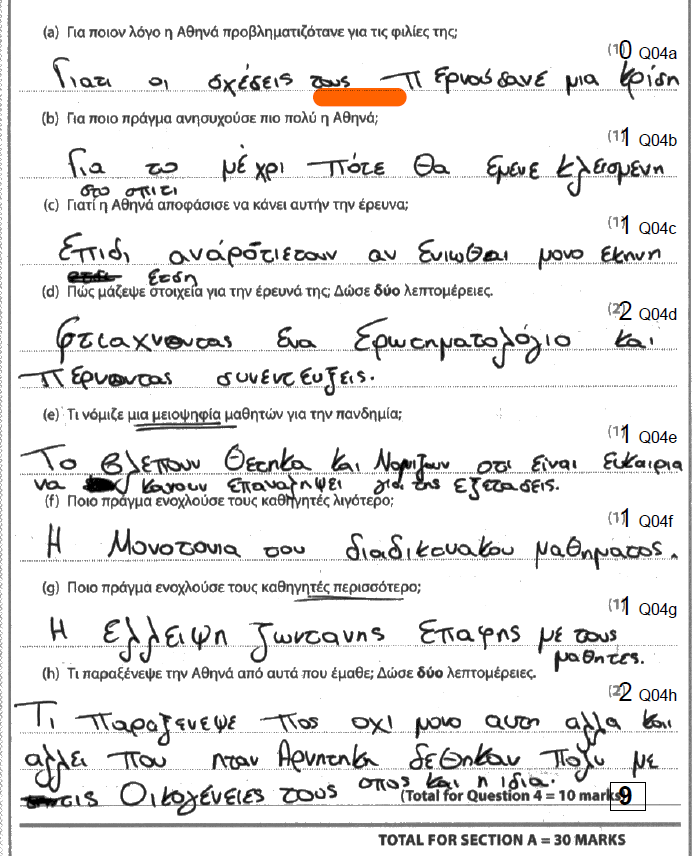 (a) Για ποιον λόγο η Αθηνά προβληματιζότανε για τις φιλίες της;
(1) 0 Q04a
Γιατι οι σχέσεις τους περνούσανε μια κρίση
(b) Για ποιο πράγμα ανησυχούσε πιο πολύ η Αθηνά;
(1) 1 Q04b
Για το μέχρι πότε θα έμενε κλεισμένη
στο σπιτι
(c) Γιατί η Αθηνά αποφάσισε να κάνει αυτήν την έρευνα;
(1) 1 Q04c
Επιδι αναρότιεταν αν ενιωθαι μονο εκηνη
ετση
(d) Πώς μάζεψε στοιχεία για την έρευνά της; Δώσε δύο λεπτομέρειες.
(2) 2 Q04d
Φτιαχνοντας ένα Ερωτηματολόγιο και
περνοντας συνεντευξεις.
(e) Τι νόμιζε μια μειοψηφία μαθητών για την πανδημία;
(1) 1 Q04e
Το βλέπουν θετηκα και Νομιζουν οτι είναι ευκαιρια
να κανουν επαναληψει για της εξετασεις.
(f) Ποιο πράγμα ενοχλούσε τους καθηγητές λιγότερο;
(1) 1 Q04f
Η Μονοτονια του διαδικτυακου μαθηματος.
(g) Ποιο πράγμα ενοχλούσε τους καθηγητές περισσότερο;
(1) 1 Q04g
Η έλλειψη ζωντανης επαφης με τους
μαθητες.
(h) Τι παραξένεψε την Αθηνά από αυτά που έμαθε; Δώσε δύο λεπτομέρειες.
(2) 2 Q04h
Τι παραξενεψε πος οχι μονο αυτη αλλα και
αλλει που ηταν Αρνητηκα δεθηκαν πολυ με
τις Οικογένειες τους οπος και η ιδια.
(Total for Question 4 = 10 marks) 9
TOTAL FOR SECTION A = 30 MARKS